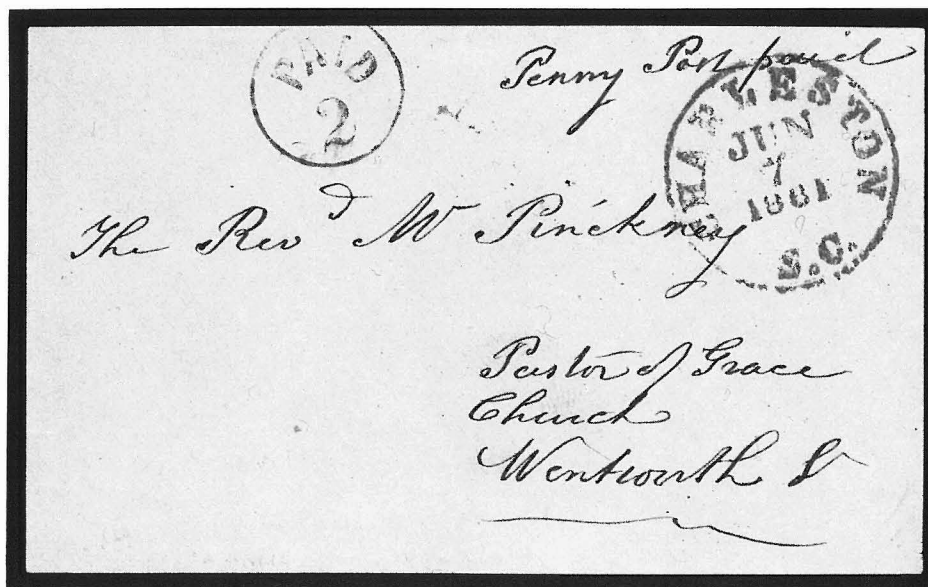 PAID
2
Penny Post paid
CHARLESTON
JUN
7
1861
S.C.
The Revd Mr Pinckney
Pastor of Grace
Church
Wentworth St